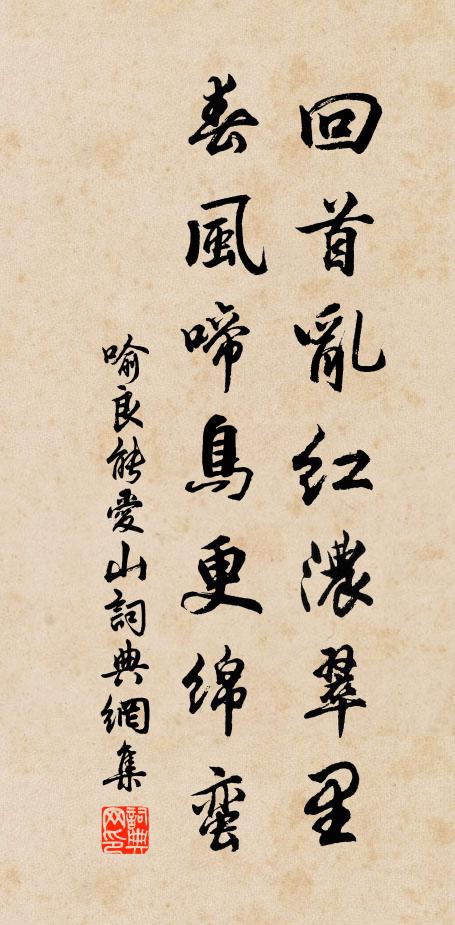 回首亂红濃翠里
春風啼鳥更绵蛮
喻良能愛山詞典網集
詞典网印